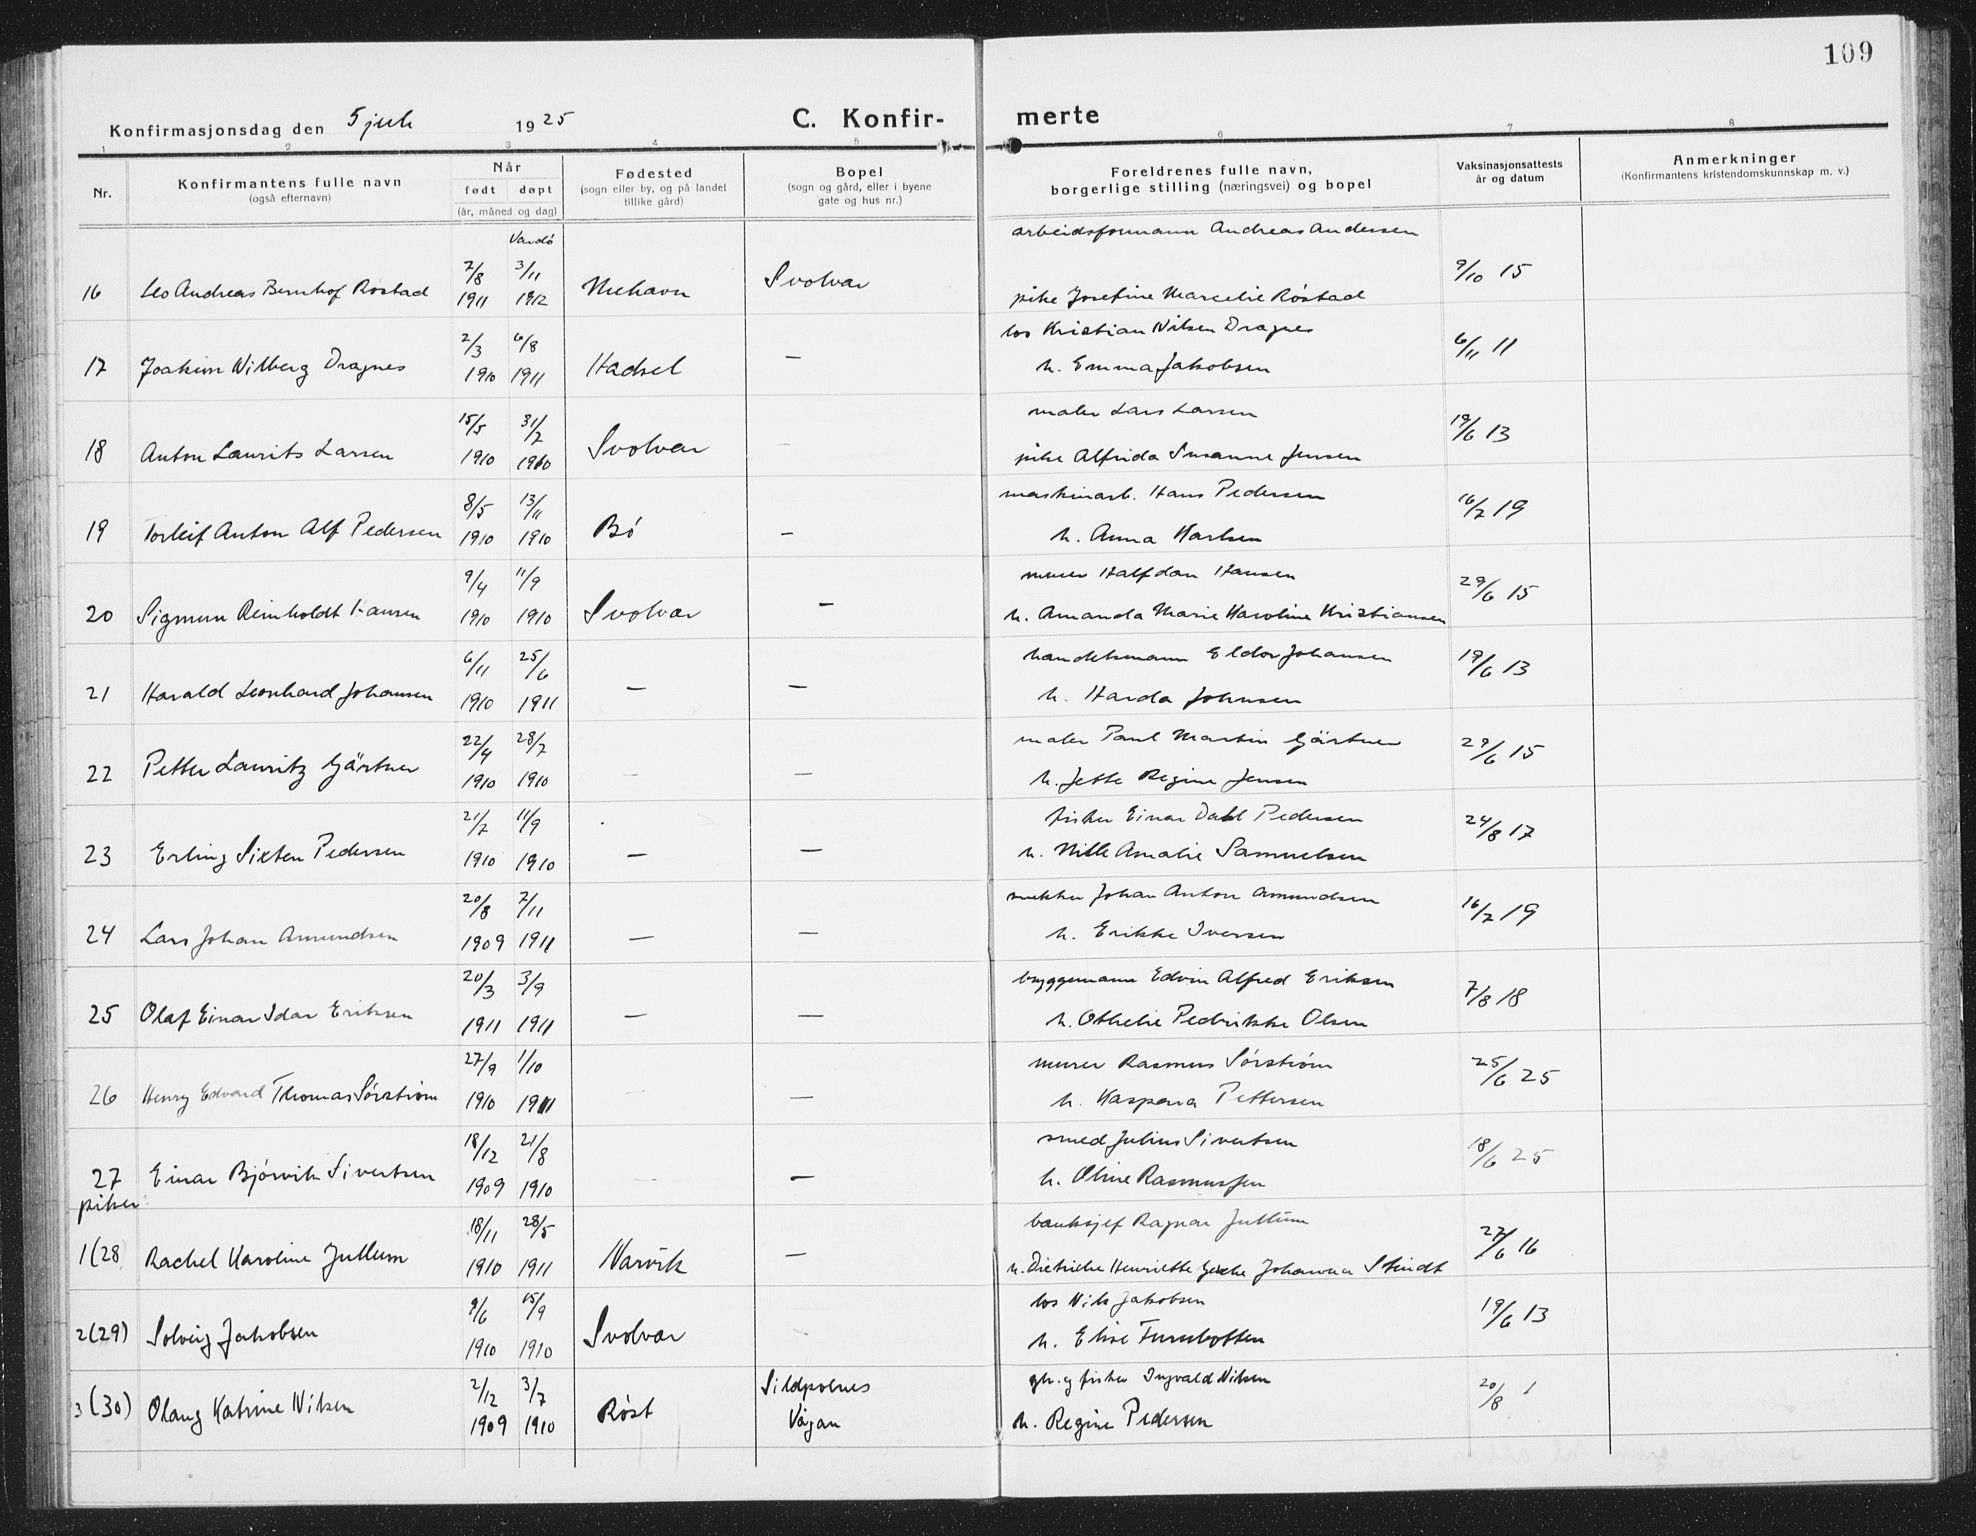 109
Konfirmasjonsdag den 5 juli 1925 C. Konfirmerte
1 2 3 4 5 6 7 8
Nr. Konfirmantens fulle navn (også efternavn) Når født døpt (år, måned og dag) Fødested (sogn eller by, og på landet tillike gård) Bopel (sogn og gård, eller i byene gate og hus nr.) Foreldrenes fulle navn, borgerlige stilling (næringsvei) og bopel Vaksinasjonsattests år og datum Anmerkninger (Konfirmantens kristendomskunnskap m. v.)
Vardö arbeidsformann Andreas Andersen
7/8 3/11 9/10 15
16 Leo Andreas Bernhof Røstad 1911 1912 Mehavn Svolvær pike Josefine Marselie Røstad
2/3 6/8 los Kristian Nilsen Dragnes 6/11 11
17 Joakim Wilberg Dragnes 1910 1911 Hadsel — h. Emma Jakobsen
15/5 31/7 maler Lars Larsen 19/6 13
18 Anton Laurits Larsen 1910 1910 Svolvær — pike Alfrida Susanne Jensen
8/5 13/11 maskinarb. Hans Pedersen 16/7 19
19 Torleif Anton Alf Pedersen 1910 1910 Bö — h. Anna Karlsen
9/4 11/9 murer Halfdan Hansen 29/6 15
20 Sigmun Reinholdt Hansen 1910 1910 Svolvær — h. Amanda Marie Karoline Kristiansen
6/11 25/6 handelsmann Eldor Johansen 19/6 13
21 Harald Leonhard Johansen 1910 1911 — — h. Harda Johnsen
22/4 28/7 maler Paul Martin Gärtner 29/6 15
22 Petter Lauritz Gärtner 1910 1910 — — h. Jette Regine Jensen
21/7 11/9 fisker Einar Dahl Pedersen 24/8 17
23 Erling Sixten Pedersen 1910 1910 — — h. Nille Amalie Samuelsen
20/8 7/11 snekker Johan Anton Amundsen 16/7 19
24 Lars Johan Amundsen 1909 1911 — — h. Erikke Iversen
20/3 3/9 byggemann Edvin Alfred Eriksen 7/8 18
25 Olaf Einar Idar Eriksen 1911 1911 — — h. Othelie Pedrikke Olsen
27/9 1/10 murer Rasmus Sörström 25/6 25
26 Henry Edvard Thomas Sörström 1910 1911 — — h. Kaspara Pettersen
18/12 21/8 smed Julius Sivertsen 18/6 25
27 Einar Bjørvik Sivertsen 1909 1910 — — h. Oline Rasmussen
piker:
18/11 28/5 banksjef Ragnar Jullum 27/6 16
1 (28) Rachel Karoline Jullum 1910 1911 Narvik — h. Dietriche Henriette Johanna Stindt
9/6 15/9 los Nils Jakobsen 19/6 13
2 (29) Solveig Jakobsen 1910 1910 Svolvær — h. Elise
2/12 3/7 Sildpolnes gbr. og fisker Ingvald Nilsen 20/8 1
3 (30) Olaug Katrine Nilsen 1909 1910 Røst Vågan h. Regine Pedersen